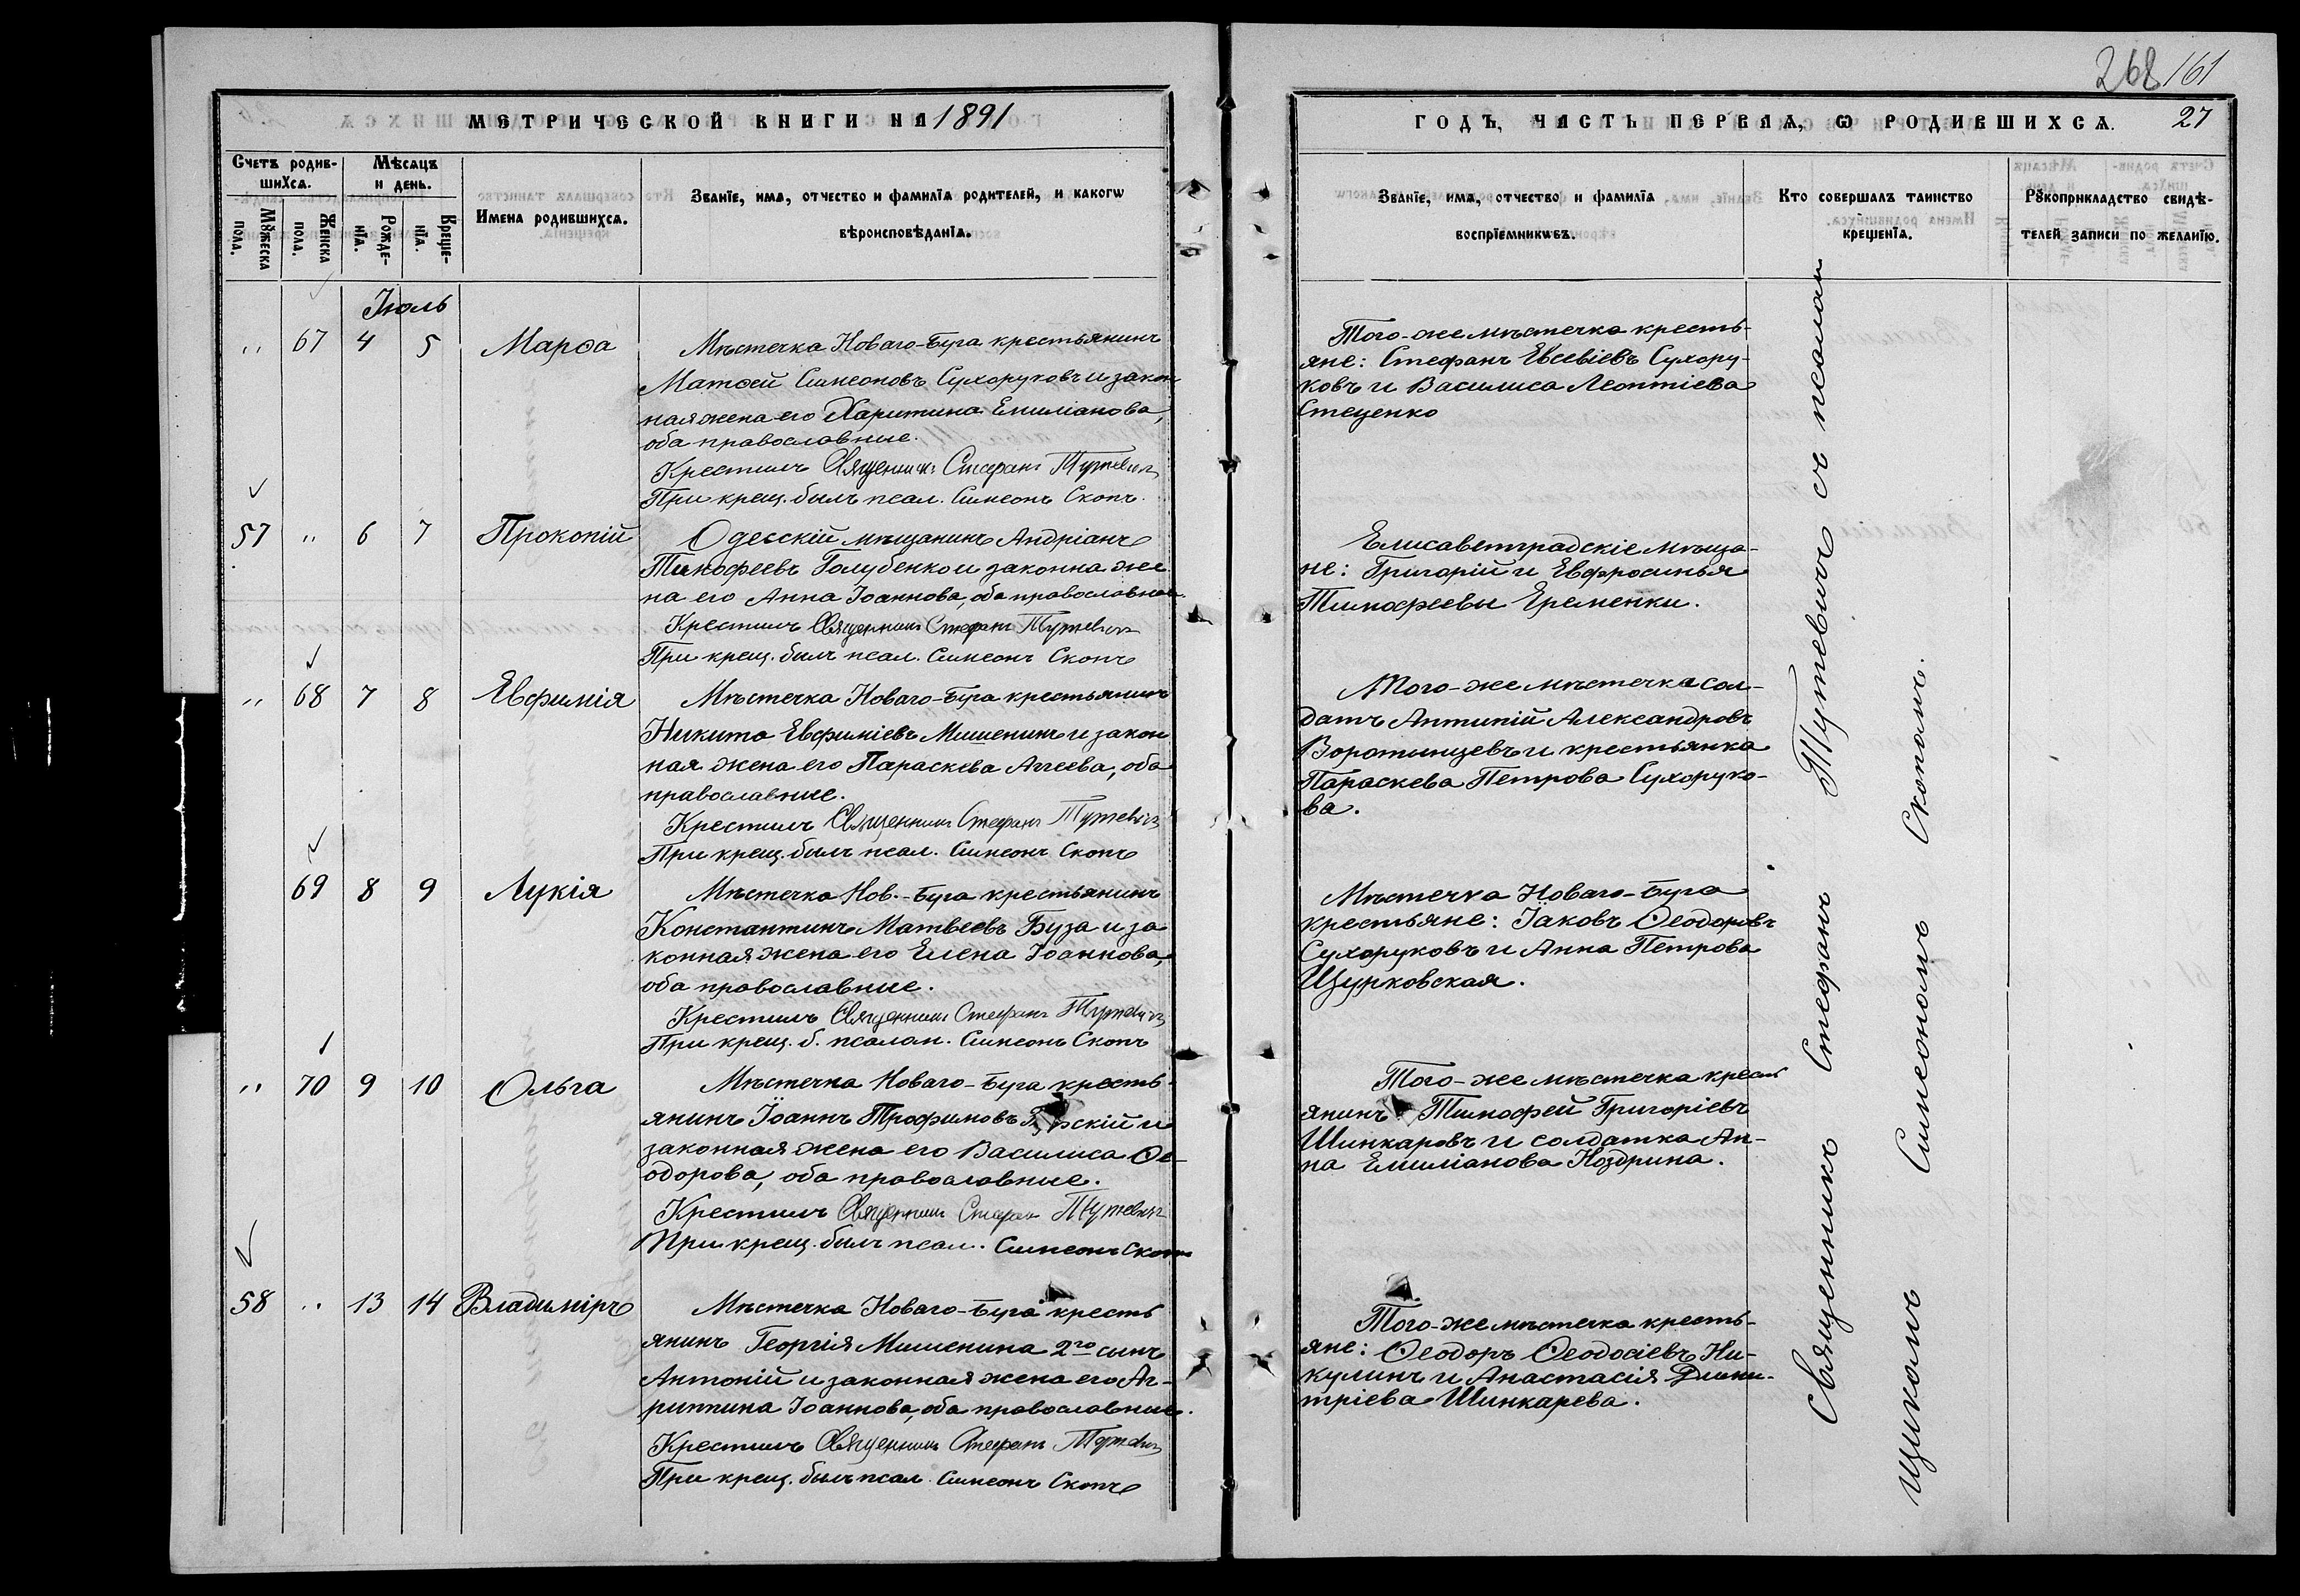 268 161
МЕТРИЧЕСКОЙ КНИГИ НА 1891
ГОДЪ, ЧАСТЬ ПЕРВАЯ, Ѡ РОДИВШИХСЯ. 27
Счетъ родив-
шихся.
Мѣсяцъ
и день.
Мꙋжеска
пола.
Женска
пола.
Рожде-
нїя.
Креще-
нїя.
Имена родившихся.
Званїе, имя, отчество и фамилїя родителей, и какогѡ
вѣроисповѣданїя.
Званїе, имя, отчество и фамилїя
воспрїемникѡвъ.
Кто совершалъ таинство
крещенїя.
Рꙋкоприкладство свидѣ-
телей записи по желанїю.
Іюль
" 67 4 5 Марѳа
Мѣстечка Новаго-Буга крестьянинъ
Матѳей Симеоновъ Сухоруковъ и закон
ная жена его Харитина Емиліанова,
оба православные.
Крестилъ Священникъ Стефанъ Тутевичъ
При крещ. былъ псал. Симеонъ Скопъ.
Того-же мѣстечка кресть-
яне: Стефанъ Евсевіевъ Сухору-
ковъ и Василиса Леонтіева
Стеценко
57 " 6 7 Прокопій
Одесскій мѣщанинъ Андріанъ
Тимофеевъ Голубенко и законна же
на его Анна Іоаннова, оба православные.
Крестилъ Священникъ Стефанъ Тутевичъ
При крещ. былъ псал. Симеонъ Скопъ
Елисаветградскіе мѣща-
не: Григорій и Евфросинья
Тимофеевы Еременки.
" 68 7 8 Евфимія
Мѣстечка Новаго-Буга крестьянинъ
Никита Евфиміевъ Мишенинъ и закон
ная жена его Параскева Аггеева, оба
православные.
Крестилъ Священникъ Стефанъ Тутевичъ
При крещ. былъ псал. Симеонъ Скопъ
Того-же мѣстечка сол-
датъ Антипій Александровъ
Воротынцевъ и крестьянка
Параскева Петрова Сухоруко-
ва.
69 8 9 Лукія
Мѣстечка Нов.-Буга крестьянинъ
Константинъ Матвеевъ Буза и за
конная жена его Елена Іоаннова,
оба православные.
Крестилъ Священникъ Стефанъ Тутевичъ
При крещ. б. псалом. Симеонъ Скопъ
Мѣстечка Новаго-Буга
крестьяне: Іаковъ Ѳеодоровъ
Сухоруковъ и Анна Петрова
Щурковская.
" 70 9 10 Ольга
Мѣстечка Новаго-Буга кресть-
янинъ Іоаннъ Трофимовъ и
законная жена его Василиса Ѳе-
одорова, оба православные.
Крестилъ Священникъ Стефанъ Тутевичъ
При крещ. былъ псал. Симеонъ Скопъ
Того-же мѣстечка кресть
янинъ Тимофей Григоріевъ
Шинкаровъ и солдатка Ан-
на Емиліанова Ноздрина.
58 " 13 14 Владиміръ
Мѣстечка Новаго-Буга кресть
янинъ Георгія Мишенина 2го сынъ
Антоній и законная жена его Аг-
риппина Іоаннова, оба православные.
Крестилъ Священникъ Стефанъ Тутевичъ
При крещ. былъ псал. Симеонъ Скопъ
Того-же мѣстечка кресть-
яне: Ѳеодоръ Ѳеодосіевъ Ни-
кулинъ и Анастасія Дими-
тріева Шинкарева.
Священникъ Стефанъ Тутевичъ съ псалом
щикомъ Симеономъ Скопомъ.